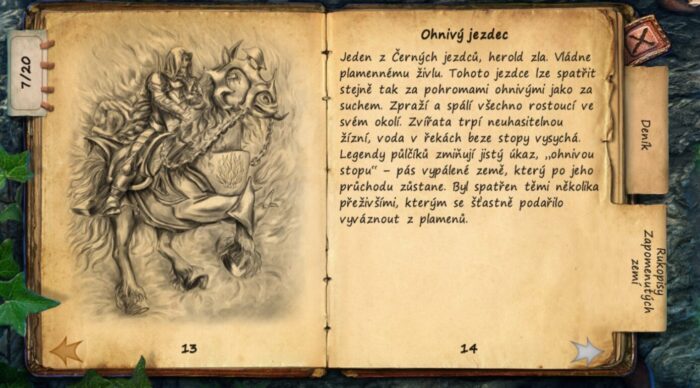 7/20
Ohnivý jezdec
Jeden z Černých jezdců, herold zla. Vládne
plamennému živlu. Tohoto jezdce lze spatřit
stejně tak za pohromami ohnivými jako za
suchem. Zpraží a spálí všechno rostoucí ve
svém okolí. Zvířata trpí neuhasitelnou
žízní, voda v řekách beze stopy vysychá.
Legendy půlčíků zmiňují jistý úkaz, „ohnivou
stopu" – pás vypálené země, který po jeho
průchodu zůstane. Byl spatřen těmi několika
přeživšími, kterým se šťastně podařilo
vyváznout z plamenů.
13
14
Deník
Rukopisy
Zapomenutých
zemí